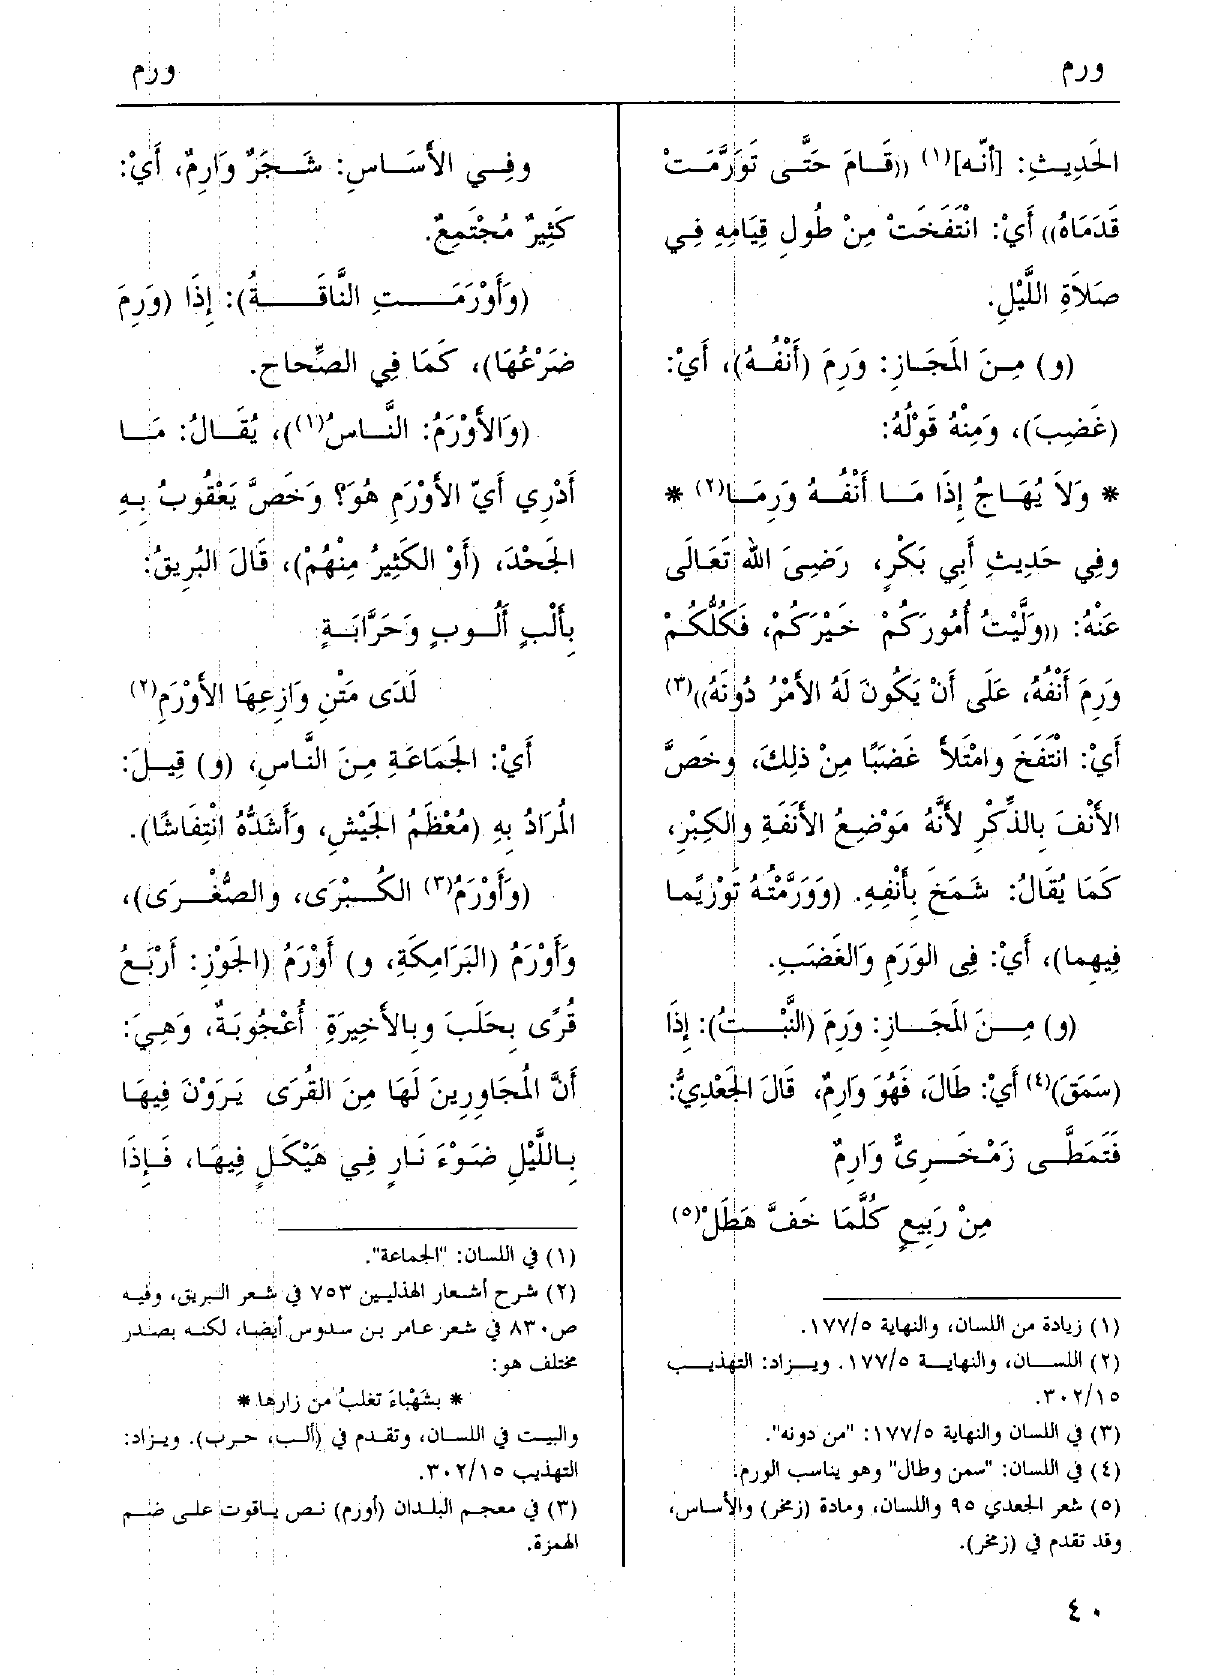 ورم
ورم
الحَدِيـثِ: [أنّه]⁽١⁾ ((قَـامَ حَتَّـى تَوَرَّمَـتْ
قَدَمَاهُ)) أَيْ: انْتَفَخَتْ مِنْ طُولِ قِيَامِهِ فِـي
صَلاَةِ اللَّيْلِ.
(و) مِـنَ الْمَجَـازِ: وَرِمَ (أَنْفُـهُ)، أَيْ:
(غَضِبَ)، وَمِنْهُ قَوْلُهُ:
* وَلاَ يُهَـاجُ إِذَا مَـا أَنْفُـهُ وَرِمَـا⁽٢⁾ *
وفِي حَدِيثِ أَبِي بَكْرٍ، رَضِىَ اللهُ تَعَالَى
عَنْهُ: ((وَلَّيْتُ أُمُورَكُمْ خَيْرَكُمْ، فَكُلُّكُمْ
وَرِمَ أَنْفُهُ، عَلَى أَنْ يَكُونَ لَهُ الأَمْرُ دُونَهُ))⁽٣⁾
أَيْ: انْتَفَخَ وامْتَلأَ غَضَبًا مِنْ ذلِكَ، وخَصَّ
الأَنْفَ بِالذِّكْرِ لأَنَّهُ مَوْضِعُ الأَنَفَةِ والكِبْرِ،
كَمَا يُقَالُ: شَمَخَ بِأَنْفِهِ. (وَوَرَّمْتُهُ تَوْرِيمًا
فِيهِما)، أَيْ: فِى الوَرَمِ وَالغَضَبِ.
(و) مِـنَ الْمَجَـازِ: وَرِمَ (النَّبْـتُ): إِذَا
(سَمَقَ)⁽٤⁾ أَيْ: طَالَ، فَهُوَ وَارِمٌ، قَالَ الجَعْدِيُّ:
فَتَمَطَّـى زَمْخَـرِىٌّ وَارِمٌ
مِنْ رَبِيعٍ كُلَّمَا خَفَّ هَطَلْ⁽٥⁾
(١) زيادة من اللسان، والنهاية ١٧٧/٥.
(٢) اللسـان، والنهايـة ١٧٧/٥. ويـزاد: التهذيـب
٣٠٢/١٥.
(٣) في اللسان والنهاية ١٧٧/٥: "من دونه".
(٤) في اللسان: "سمن وطال" وهو يناسب الورم.
(٥) شعر الجعدي ٩٥ واللسان، ومادة (زمخر) والأساس،
وقد تقدم في (زمخر).
وفِـي الأَسَـاسِ: شَـجَرٌ وَارِمٌ، أَيْ:
كَثِيرٌ مُجْتَمِعٌ.
(وَأَوْرَمَـتِ النَّاقَـةُ): إِذَا (وَرِمَ
ضَرْعُهَا)، كَمَا فِي الصِّحاح.
(وَالأَوْرَمُ: النَّـاسُ⁽١⁾)، يُقَـالُ: مَـا
أَدْرِي أَيّ الأَوْرَمِ هُوَ؟ وَخَصَّ يَعْقُوبُ بِهِ
الجَحْدَ، (أَوْ الكَثِيرُ مِنْهُمْ)، قَالَ البُرِيقُ:
بِأَلْبٍ أَلُـوبٍ وَحَرَّابَـةٍ
لَدَى مَتْنِ وَازِعِهَا الأَوْرَمِ⁽٢⁾
أَيْ: الجَمَاعَةِ مِـنَ النَّاسِ، (و) قِيـلَ:
الْمُرَادُ بِهِ (مُعْظَمُ الجَيْشِ، وَأَشَدُّهُ انْتِفَاشًا).
(وَأَوْرَمُ⁽٣⁾ الكُـبْرَى، والصُّغْـرَى)،
وَأَوْرَمُ (البَرَامِكَةِ، و) أَوْرَمُ (الجَوْزِ: أَرْبَعُ
قُرًى بِحَلَبَ وبِالأَخِيرَةِ أُعْجُوبَةٌ، وَهِيَ:
أَنَّ الْمُجَاوِرِينَ لَهَا مِنَ القُرَى يَرَوْنَ فِيهَا
بِـاللَّيْلِ ضَوْءَ نَـارٍ فِـي هَيْكَـلٍ فِيهَـا، فَـإِذَا
(١) في اللسان: "الجماعة".
(٢) شرح أشعار الهذليين ٧٥٣ في شعر البريق، وفيه
ص٨٣٠ في شعر عامر بن سدوس أيضا، لكنه بصدر
مختلف هو:
* بشَهْبَاءَ تغلبُ من زارها *
والبيت في اللسان، وتقدم في (ألب، حرب). ويزاد:
التهذيب ٣٠٢/١٥.
(٣) في معجم البلدان (أورم) نص ياقوت على ضم
الهمزة.
٤٠